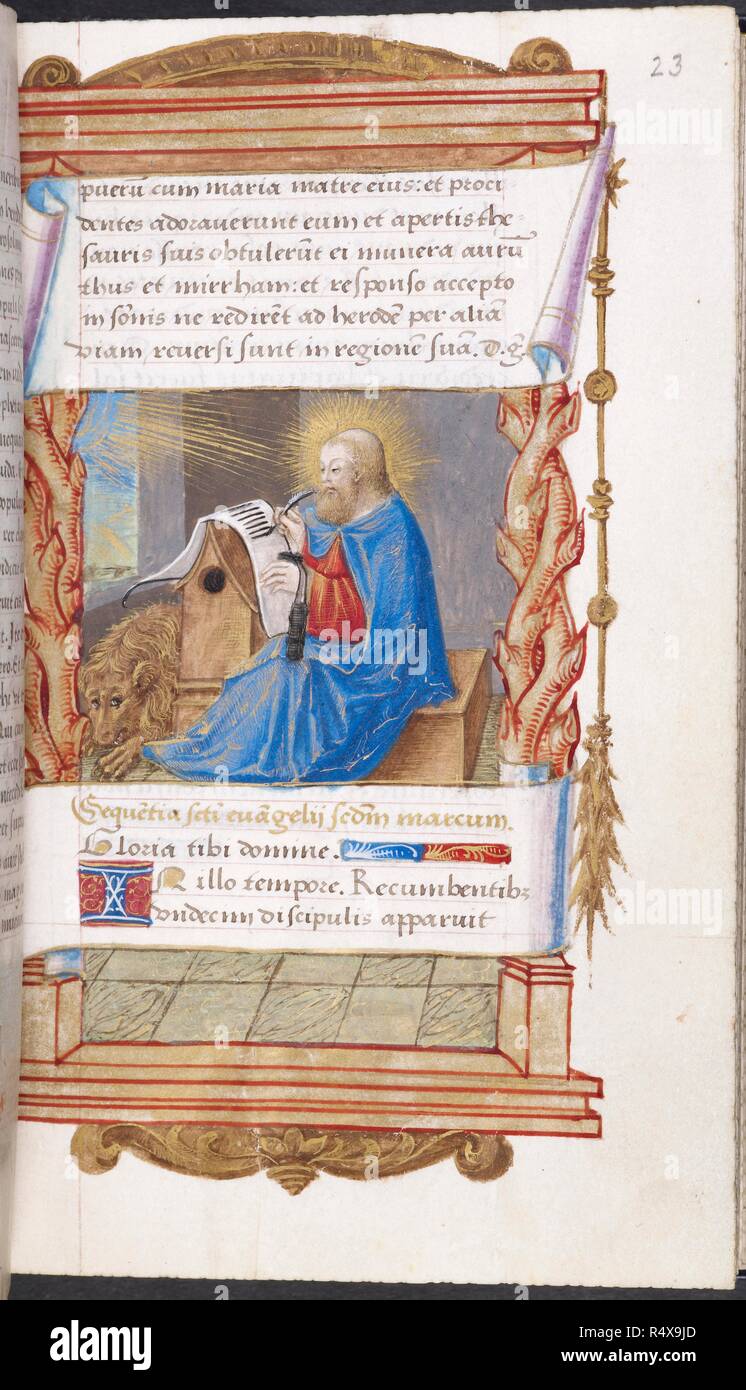 23
puerū cum maria matre eius: et proci
dentes adoraverunt eum et apertis the-
sauris suis obtulerūt ei munera aurū
thus et mirrham: et responso accepto
in sōnis ne redirēt ad herodē per aliā
viam, reversi sunt in regionē suā. D. g̃.
Sequētia scti evāgelij scdm marcum.
Gloria tibi domine.
IN illo tempore. Recumbentibꝫ
undecim discipulis apparuit
alamy
Image ID: R4X9JD
www.alamy.com